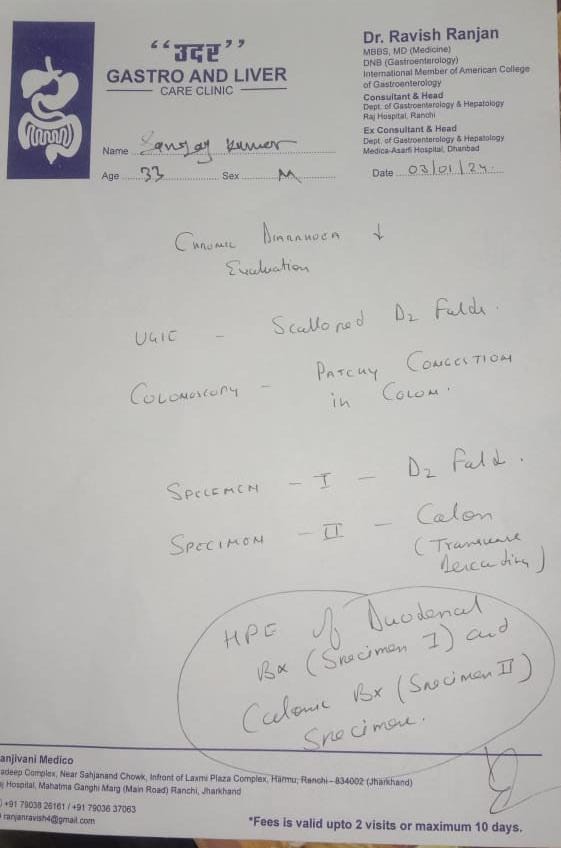 “उदर”
GASTRO AND LIVER
CARE CLINIC
Dr. Ravish Ranjan
MBBS, MD (Medicine)
DNB (Gastroenterology)
International Member of American College
of Gastroenterology
Consultant & Head
Dept. of Gastroenterology & Hepatology
Raj Hospital, Ranchi
Ex Consultant & Head
Dept. of Gastroenterology & Hepatology
Medica-Asarfi Hospital, Dhanbad
Name Sanjay Kumar
Age 33 Sex M
Date 03/01/24
CHRONIC DIARRHOEA ↓
Evaluation
UGIE - Scalloped D2 Folds.
COLONOSCOPY - PATCHY CONGESTION
in COLON.
SPECIMEN - I - D2 Fold.
SPECIMEN - II - Colon
(Transverse
Descending)
HPE of Duodenal
Bx (Specimen I) and
Colonic Bx (Specimen II)
Specimen.
anjivani Medico
adeep Complex, Near Sahjanand Chowk, Infront of Laxmi Plaza Complex, Harmu, Ranchi-834002 (Jharkhand)
j Hospital, Mahatma Ganghi Marg (Main Road) Ranchi, Jharkhand
+91 79038 26161 / +91 79036 37063
ranjanravish4@gmail.com
*Fees is valid upto 2 visits or maximum 10 days.